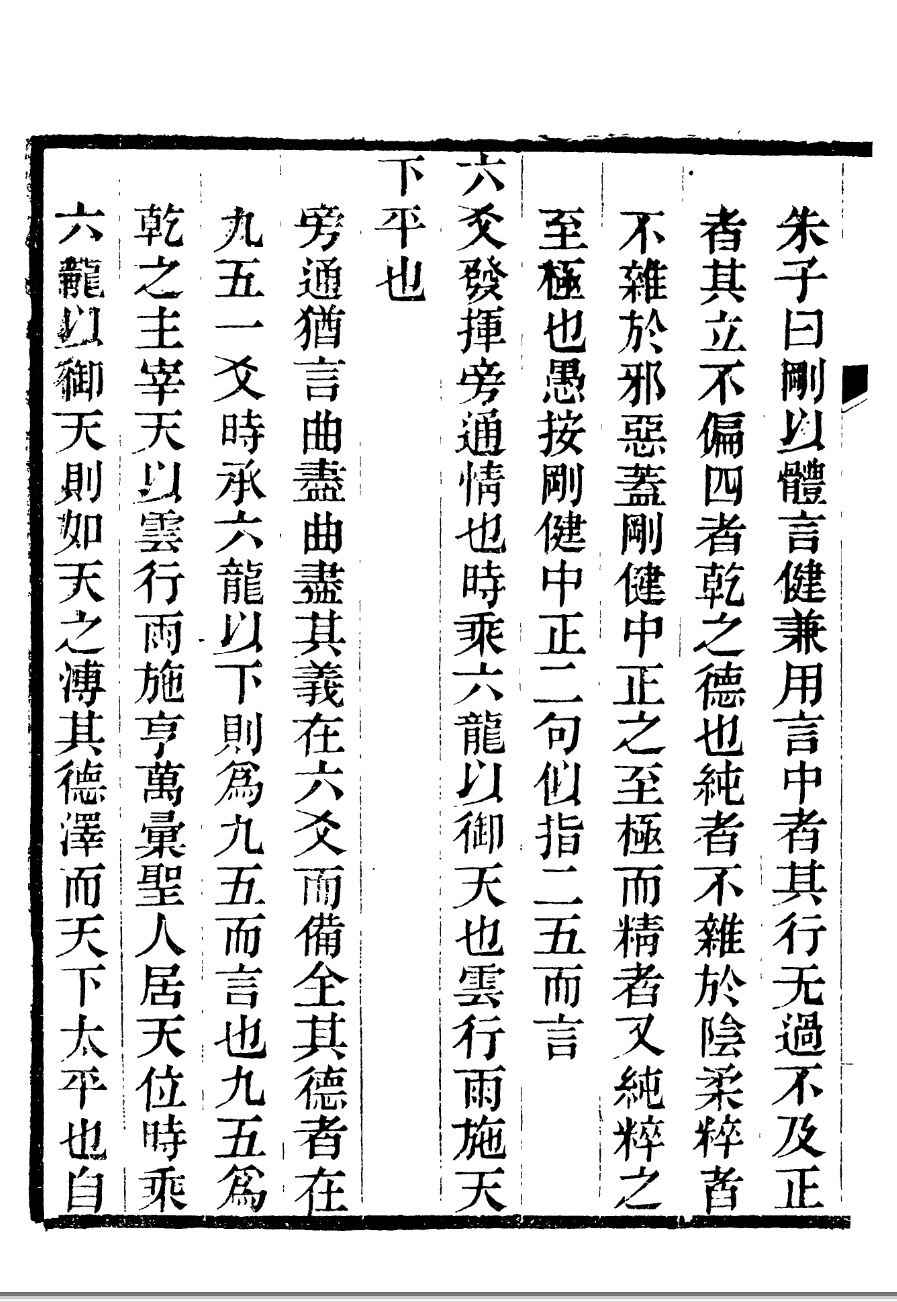 朱子曰剛以體言健兼用言中者其行无過不及正
者其立不偏四者乾之德也純者不雜於陰柔粹者
不雜於邪惡蓋剛健中正之至極而精者又純粹之
至極也愚按剛健中正二句似指二五而言
六爻發揮旁通情也時乘六龍以御天也雲行雨施天
下平也
旁通猶言曲盡曲盡其義在六爻而備全其德者在
九五一爻時承六龍以下則爲九五而言也九五爲
乾之主宰天以雲行雨施亨萬彙聖人居天位時乘
六龍以御天則如天之溥其德澤而天下太平也自